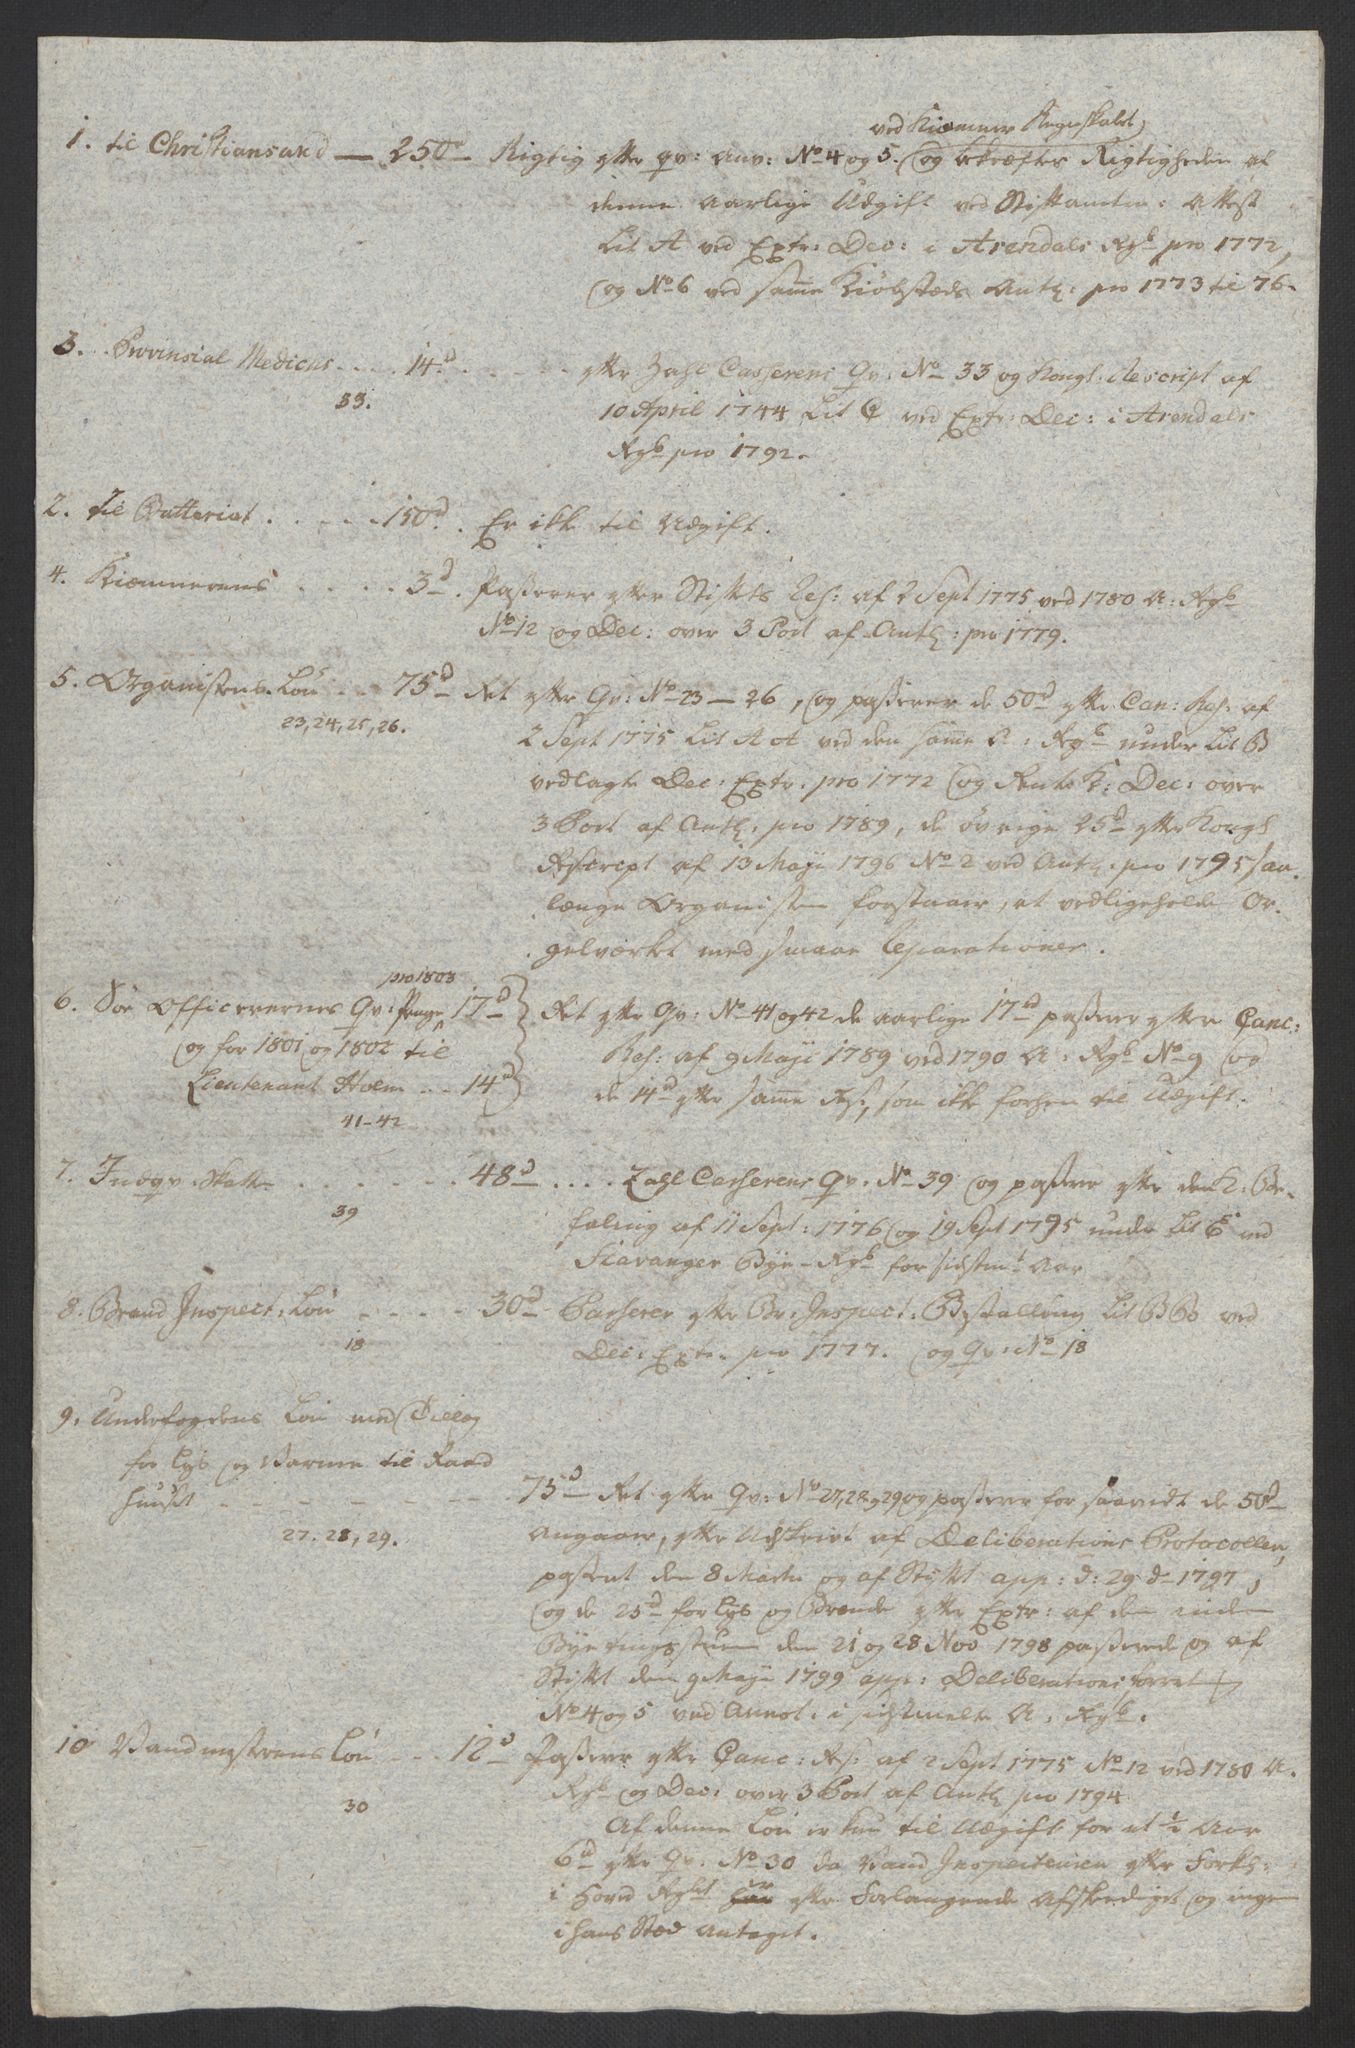 ved Kiemner Regnskabet,
1. til Christiansand — 250d Rigtig efter qv: anv: No 4 og 5. og bekræfter Rigtigheden af
denne aarlige Udgift ved Stiftamtm: Attest
Lit A ved Extr: Dec: i Arendals Rgb pro 1772,
og No 6 ved samme Kiøbstæds Antg: pro 1773 til 76.
3. Provinsial Medicus . . . . 14d . . . . . efter Zahl Casserens Qv: No 33 og Kongl: Rescript af
33. 10 April 1744 Lit C ved Extr: Dec: i Arendals
Rgb pro 1792.
2. til Batteriet . . . . . 150d . Er ikke til Udgift.
4. Kiemnerens . . . . 3d . Passerer efter Stiftets Res: af 2 Sept 1775 ved 1780 A: Rgb
No 12 og Dec: over 3 Post af Antg: pro 1779.
5. Organistens Løn . . . 75d Ret efter Qv: No 23 — 26, og passerer de 50d efter Can: Res: af
23, 24, 25, 26. 2 Sept 1775 Lit A A ved den samme A: Rgb under Lit B
vedlagte Dec: Extr. pro 1772 og Rente K: Dec: over
3 Post af Antg. pro 1789, de øvrige 25d efter Kongl
Rescript af 13 Maji 1796 No 2 ved Antg. pro 1795 saa
længe Organisten forstaaer, at vedligeholde Or-
gelværket med smaae Reparationer.
pro 1803
6. For Officerernes Qv: Penge 17d Ret efter Qv: No 41 og 42 de aarlige 17d passerer efter Canc:
og for 1801 og 1802 til Res: af 9 Maji 1789 ved 1790 A: Rgb No 9 og
Lieutenant Holm . . 14d de 14d efter samme Res:, som ikke forhen til Udgift.
41-42
7. Indqv. Skatten . . . . . . 48d . . . . Zahl Casserens Qv: No 39 og passerer efter den K: Be-
39 faling af 11 Sept: 1776 og 19 Sept 1795 under Lit ved
Stavanger Bye-Rgb for sidstm: Aar
8. Brand Inspect: Løn . . . . 30d Passerer efter Br: Inspect: Bestalling Lit B B ved
18 Dec: Extr. pro 1777. og Qv: No 18
9. Underfogdens Løn med Tillæg
for Lys og Varme til Raad
huuset - - - - - - - 75d Ret efter Qv: No 27, 28 og 29 og passerer for saavidt de 50d
27. 28, 29. angaaer, efter Udskrivt af Deliberations Protocollen,
passeret den 8 Martii og af Stiftet app: d: 29 d— 1797,
og de 25d for Lys og Brænde efter Extr: af den inden
Bye tingsstuen den 21 og 28 Nov 1798 passerede og af
Stiftet den 9 Maji 1799 app: Deliberations forret
No 4 og 5 ved Annot. i sidstmelte A. Rgb.
10 Vandmesterens Løn . . . 12d Passerer efter Canc: Res: af 2 Sept 1775 No 12 ved 1780 A.
Rgb og Dec: over 3 Post af Antg pro 1794
30 Af denne Løn er kun til Udgift for et ½ Aar
6d efter Qv: No 30 da Vand Inspecteuren efter Forkl:
i Hoved Rgbet er efter Forlangende afskediget og ingen
i hans Sted antaget.